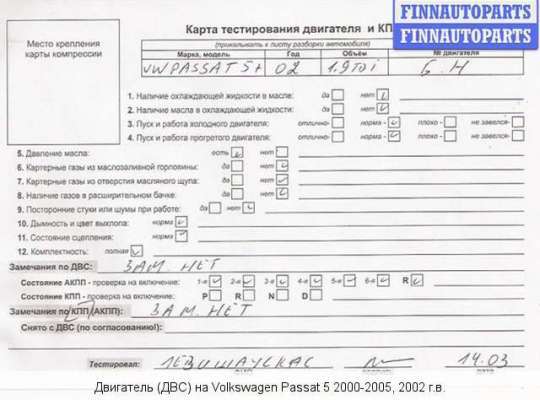 FINNAUTOPARTS
FINNAUTOPARTS
Место крепления карты компрессии
Карта тестирования двигателя и КП
(прикалывать к листу разборки автомобиля)
Марка, модель Год Объем № двигателя
VW PASSAT 5+ 02 1.9 TDi Б.Н
1. Наличие охлаждающей жидкости в масле: да нет
2. Наличие масла в охлаждающей жидкости: да нет
3. Пуск и работа холодного двигателя: отлично- норма - плохо - не завелся-
4. Пуск и работа прогретого двигателя: отлично- норма - плохо - не завелся-
5. Давление масла: есть нет
6. Картерные газы из маслозаливной горловины: да нет
7. Картерные газы из отверстия масляного щупа: да нет
8. Наличие газов в расширительном бачке: да нет
9. Посторонние стуки или шумы при работе: да нет
10. Дымность и цвет выхлопа: норма
11. Состояние сцепления: норма
12. Комплектность: полная
Замечания по ДВС: ЗАМ. НЕТ
Состояние АКПП - проверка на включение: 1-я 2-я 3-я 4-я 5-я 6-я R
Состояние КПП - проверка на включение: P R N D
Замечания по КПП (АКПП): ЗАМ. НЕТ
Снято с ДВС (по согласованию!):
Тестировал: 14.03
Двигатель (ДВС) на Volkswagen Passat 5 2000-2005, 2002 г.в.